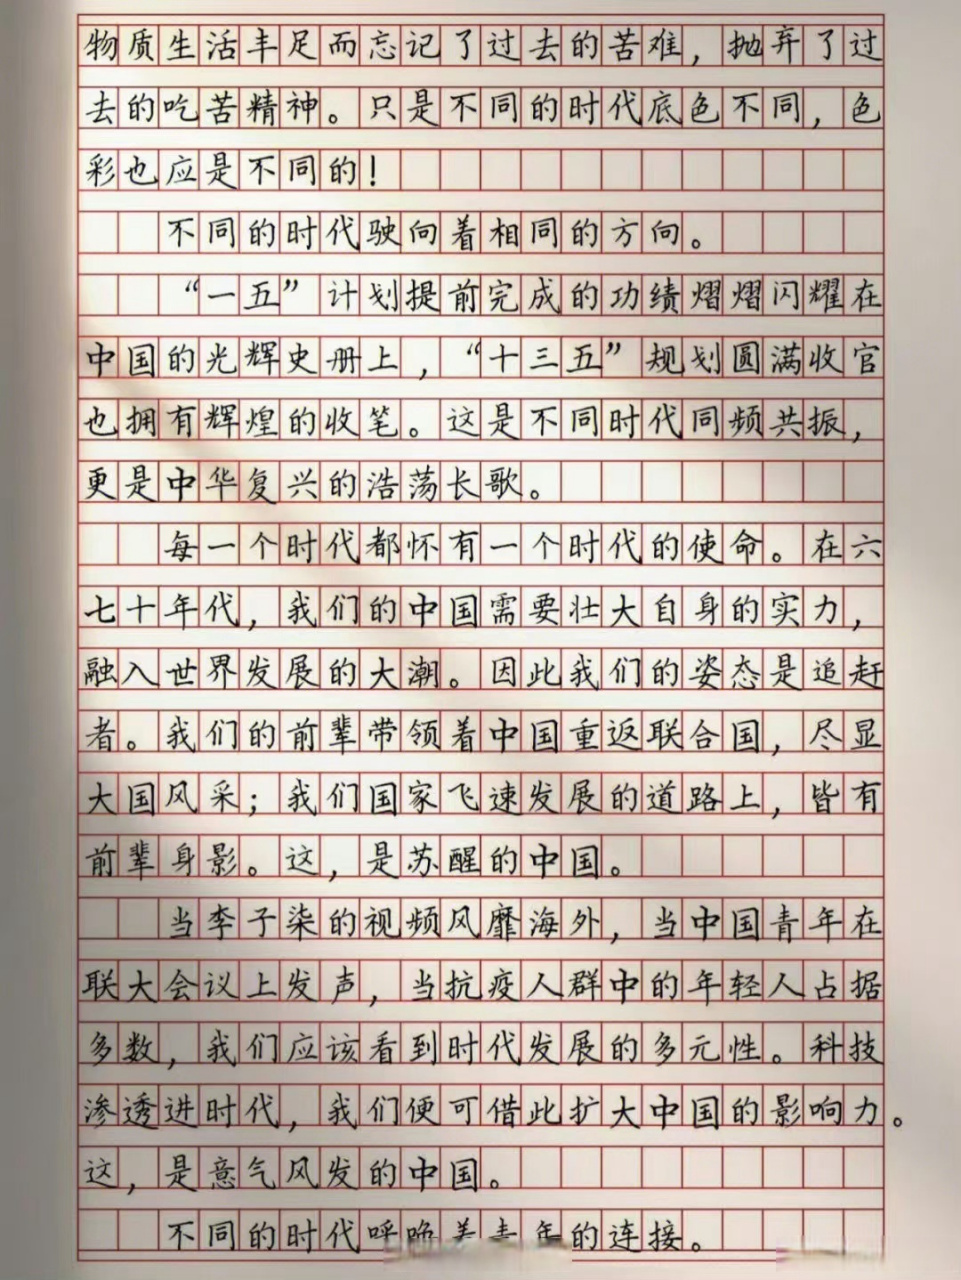 物质生活丰足而忘记了过去的苦难，抛弃了过
去的吃苦精神。只是不同的时代底色不同，色
彩也应是不同的！
不同的时代驶向着相同的方向。
“一五”计划提前完成的功绩熠熠闪耀在
中国的光辉史册上，“十三五”规划圆满收官
也拥有辉煌的收笔。这是不同时代同频共振，
更是中华复兴的浩荡长歌。
每一个时代都怀有一个时代的使命。在六
七十年代，我们的中国需要壮大自身的实力，
融入世界发展的大潮。因此我们的姿态是追赶
者。我们的前辈带领着中国重返联合国，尽显
大国风采；我们国家飞速发展的道路上，皆有
前辈身影。这，是苏醒的中国。
当李子柒的视频风靡海外，当中国青年在
联大会议上发声，当抗疫人群中的年轻人占据
多数，我们应该看到时代发展的多元性。科技
渗透进时代，我们便可借此扩大中国的影响力。
这，是意气风发的中国。
不同的时代呼唤着青年的连接。